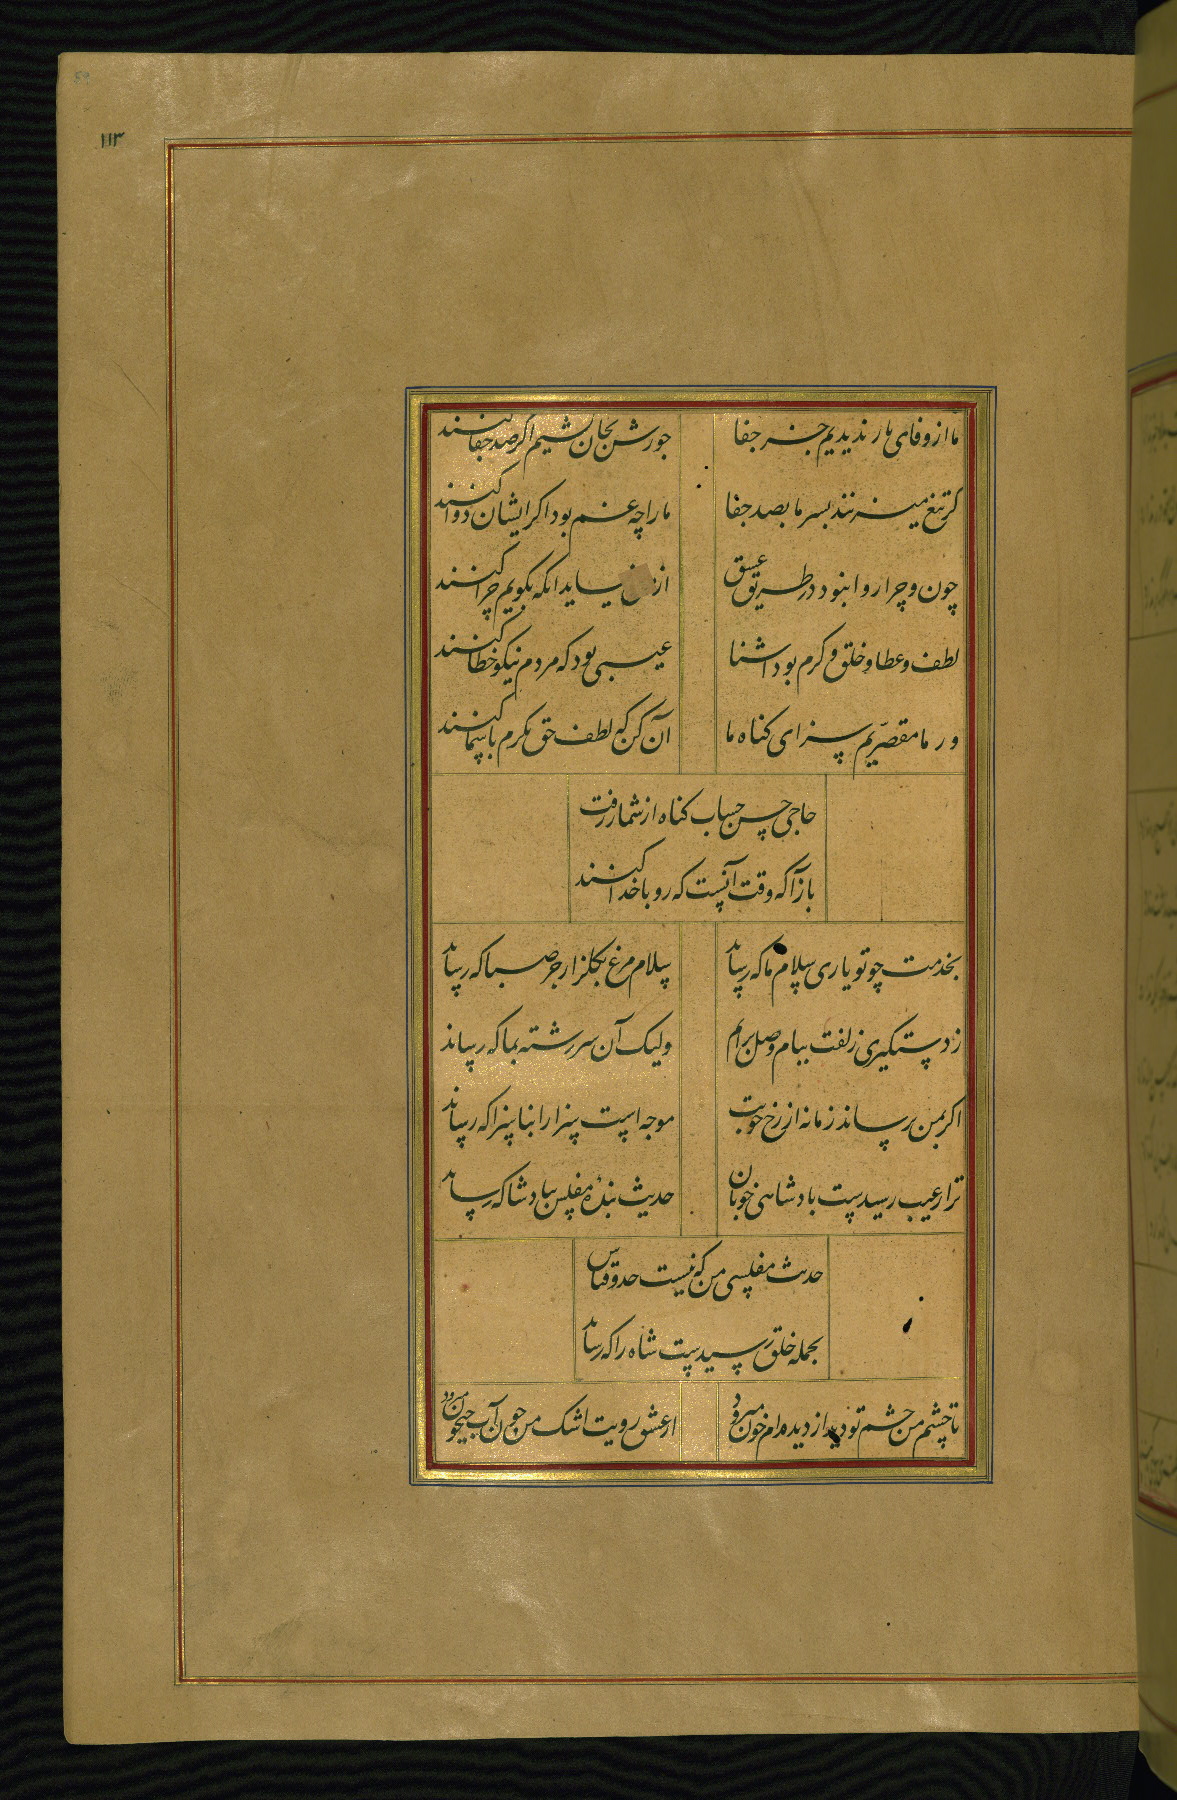 ۱۱۳
ما از وفای یار ندیدیم جز جفا
جورش بجان کشیم اکر صد جفا کنند
کر تیغ میزنند بسر ما بصد جفا
ما را چه غم بود اکر ایشان دوا کنند
چون و چرا روا نبود در طریق عشق
از ساید انکه بکویم چرا کنند
لطف و عطا و خلق و کرم بود اشنا
عیبی بود که مردم نیکو خطا کنند
ور ما مقصریم سزای کناه ما
آن کن که لطف حق بکرم با کنند
حاجی حسن حساب کناه از شمار رفت
بازآ که وقت آنست که رو با خدا کنند
بخدمت چو تو یاری سلام ما که رساند
سلام مرغ بکلزار جز صبا که رساند
ز دستکیری زلفت ببام وصل برام
ولیک آن سر رشته بما که رساند
اکر بمن رساند زمانه از رخ خوبت
موجه است سزا را بناسزا که رساند
ترا ز عیب رسیدست بادشاهی خوبان
حدیث بنده مفلس ببادشا که رساند
حدیث مفلسی من که نیست حد و قیاس
بجمله خلق رسیدست شاه را که رساند
تا چشم من چشم تو دید از دیده ام خون میرود
از عشق رویت اشک من چون آب جیحون میرود